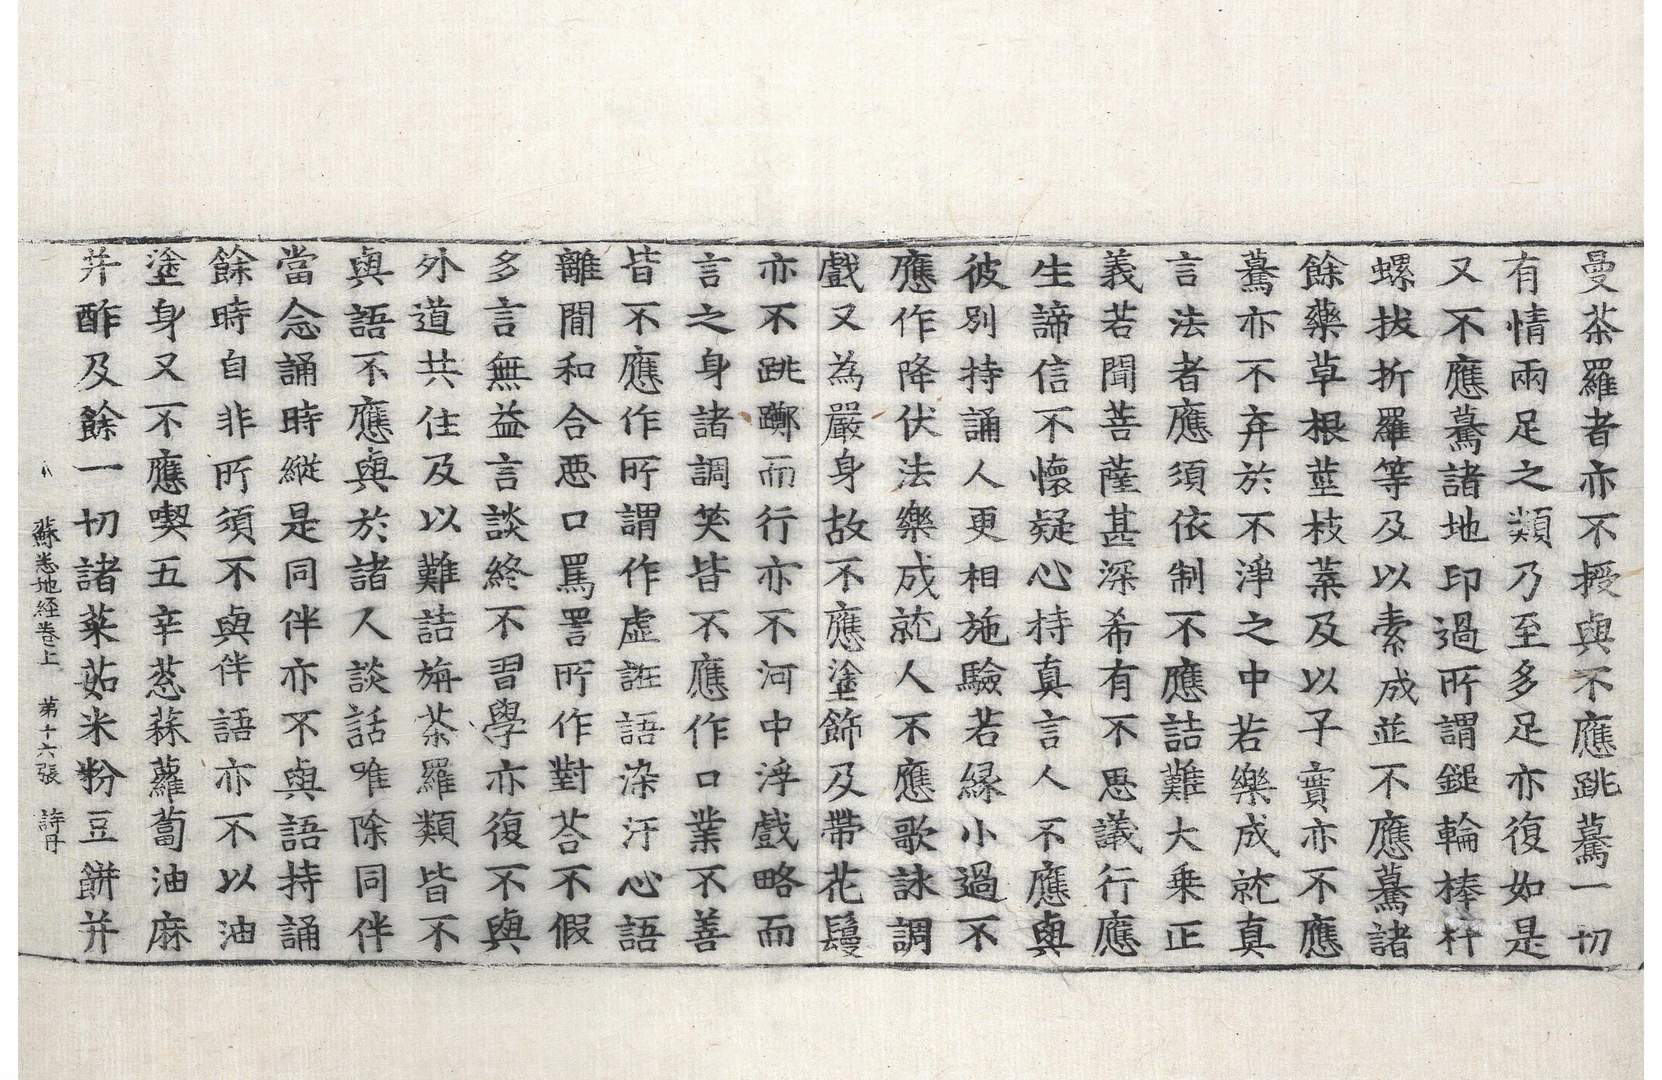 曼茶羅者亦不授與不應跳驀一切
有情兩足之類乃至多足亦復如是
又不應驀諸地印過所謂鎚輪棒杵
螺拔折羅等及以素成並不應驀諸
餘藥草根莖枝葉及以子實亦不應
驀亦不弃於不淨之中若樂成就真
言法者應須依制不應詰難大乗正
義若聞菩薩甚深希有不思議行應
生諦信不懷疑心持真言人不應與
彼別持誦人更相施驗若縁小過不
應作降伏法樂成就人不應歌詠調
戲又為嚴身故不應塗飾及帶花鬘
亦不跳躑而行亦不河中浮戲略而
言之身諸調笑皆不應作口業不善
皆不應作所謂作虛誑語染汙心語
離間和合惡口罵詈所作對荅不假
多言無益言談終不習學亦復不與
外道共住及以難詰旃茶羅類皆不
與語不應與於諸人談話唯除同伴
當念誦時縱是同伴亦不與語持誦
餘時自非所須不與伴語亦不以油
塗身又不應喫五辛葱蒜蘿蔔油麻
并酢及餘一切諸菜茹米粉豆餅并
蘇悉地経卷上 第十六張 詩丹